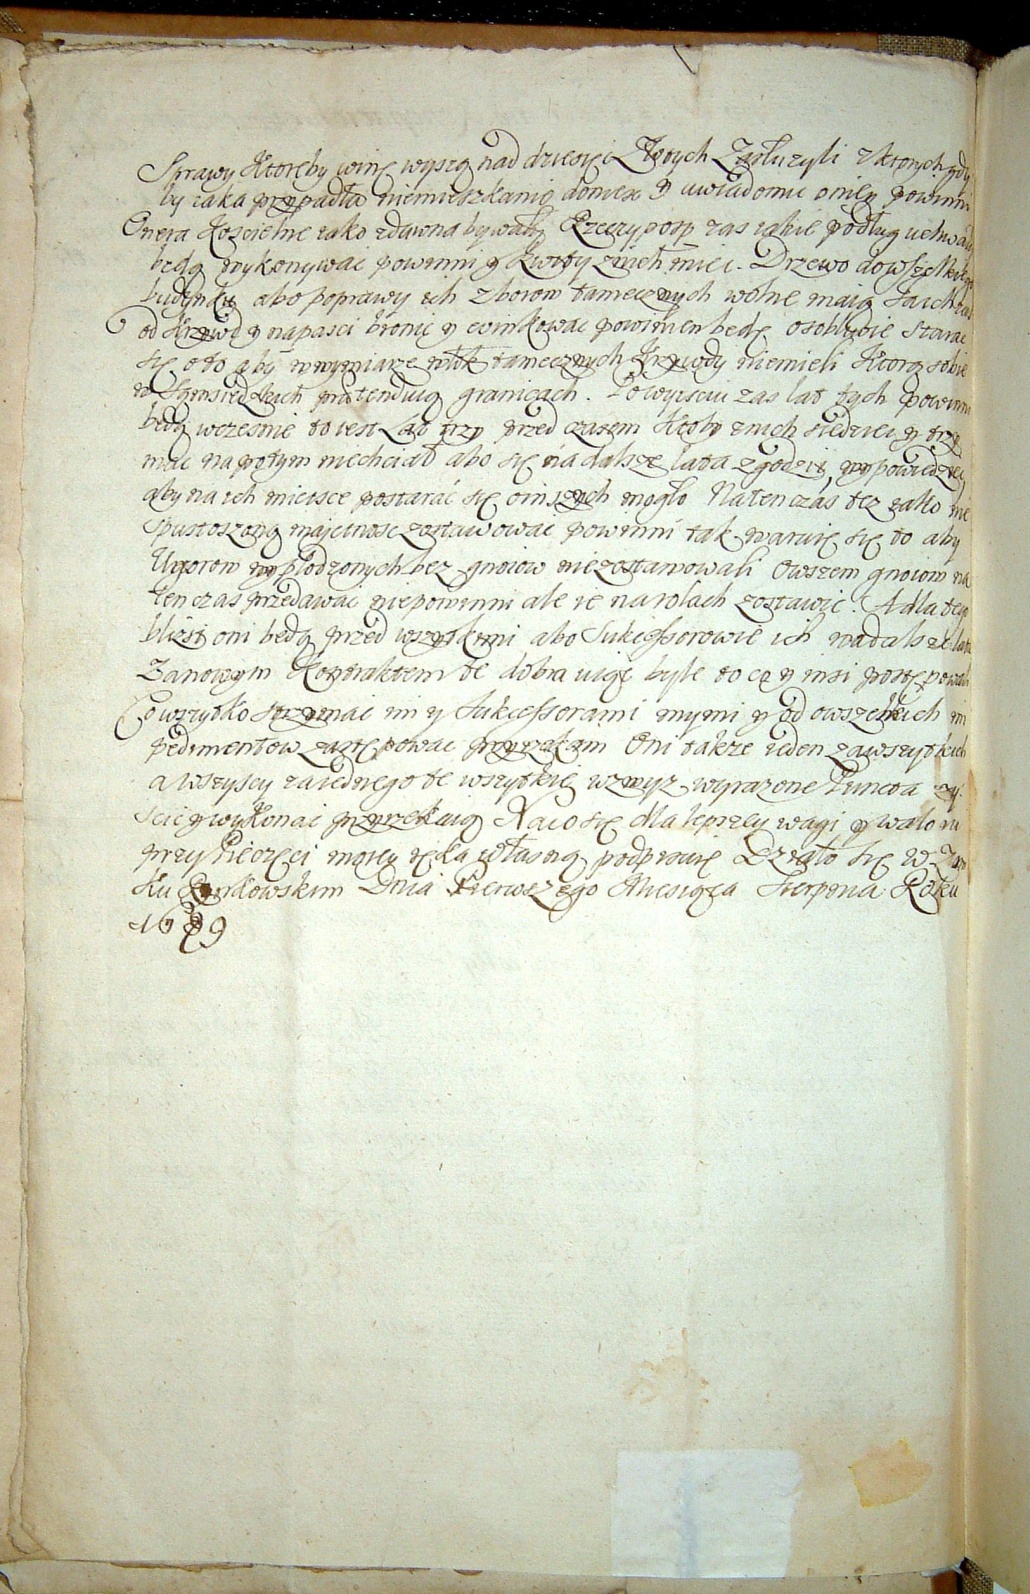 Sprawy Ktoreby winę wyszą nad dziesięć Złotych Zasłużyli z ktorych gdy
by iaka przypadła niemieszkanie donieść y uwiadomić o niey powinni
Onera Koscielne iako zdawna bywały Rzeczyposp zas iakie podług uchwały
będą wykonywać powinni y Kwity z nich mieć. Drzewo do wszelkiego
budynku abo poprawy ich z borow tamecznych wolne maią Ja ich zaś
od Krzywd y napasci bronić y ewinkować powinien będę osobliwie starać
się o to aby w wymiarze włok tamecznych Krzywdy niemieli Ktorą sobie
w Sąmsiedzkich prætenduią granicach. Po wyisciu zas lat tych powinni
będą wczesnie to iest Lat trzy przed czasem Ktoby z nich siedzieć y trzy
mać napotym niechciał abo się na dalsze lata zgodzić, wypowiedzieć
aby na ich mieisce postarać się o inszych mogło Natenczás też iako nie
spustoszoną maiętnosc zostawować powinni tak waruię się to aby
Ugorow wypłodzonych bez gnoiow niezostawowali Owszem gnoiow na
ten czas przedawać niepowinni ale ie na rolach zostawić. A dla tego
bliższi oni będą przed wszystkimi abo Sukcessorowie ich na dalsze lata
Za nowym Kontraktem te dobra wiąć byle to co y insi postępowali
Co wszytko strzymać im y Sukcessorami mymi y od owszelkich im
pedimentow zastępować przyrzekam Oni także ieden za wszytkich
a wszyscy za iednego te wszytkie wzwyż wyrażone Puncta zy
scić y wykonać przyrzekaią Na co się dla lepszey wagi y waloru
przy Pieczęci moiey ręką własną podpisuię Działo się W
Dnia Pierwszego Miesiąca Sierpnia Roku